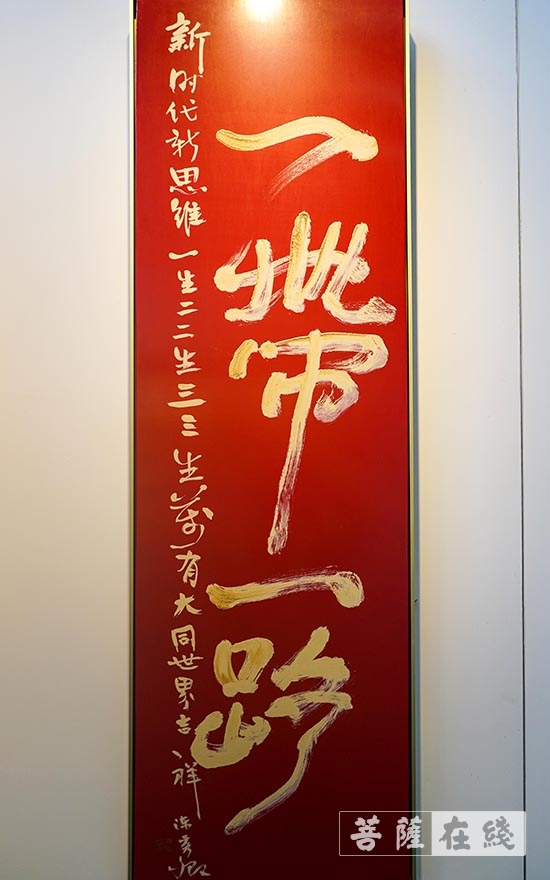 一帶一路
新时代新思維一生二二生三三生萬有大同世界吉祥
陈秀卿
菩薩在綫